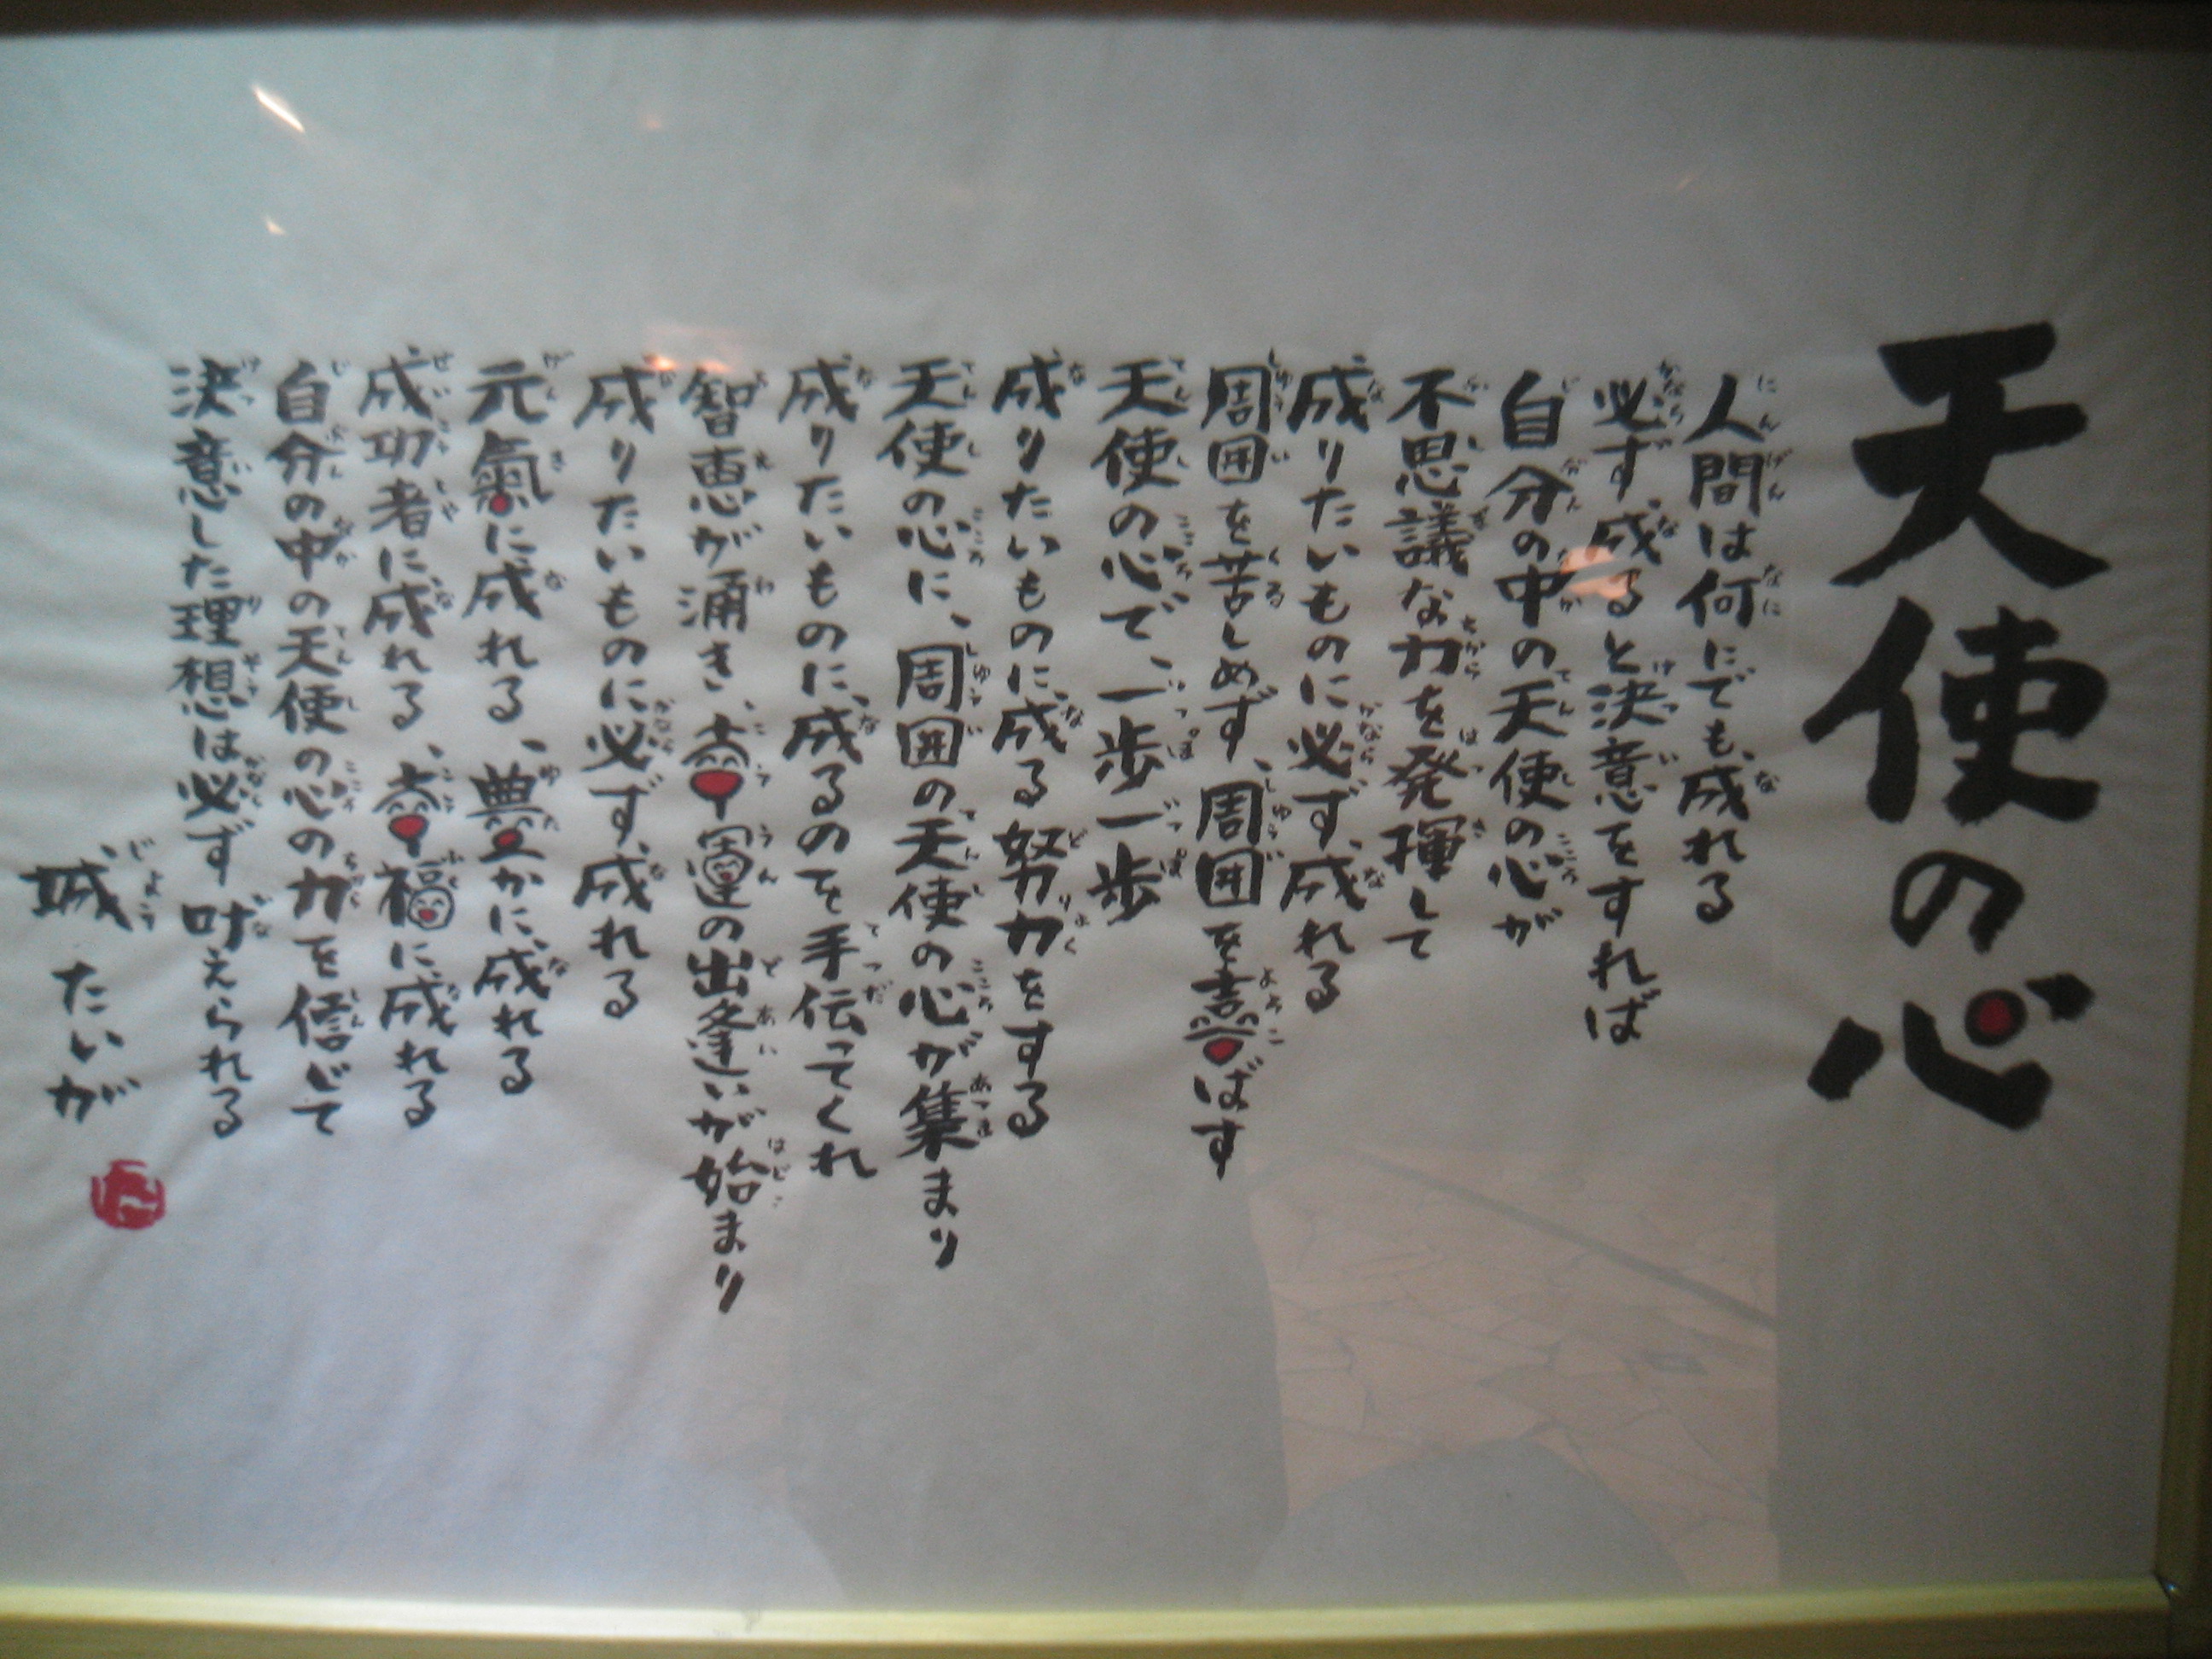 天使の心
人間は何にでも成れる
必ず成ると決意をすれば
自分の中の天使の心が
不思議な力を発揮して
成りたいものに必ず成れる
周囲を苦しめず、周囲を喜ばす
天使の心で、一歩一歩
成りたいものに成る努力をする
天使の心に、周囲の天使の心が集まり
成りたいものに成るのを手伝ってくれ
智恵が涌き、幸運の出逢いが始まり
成りたいものに必ず成れる
元氣に成れる、豊かに成れる
成功者に成れる、幸福に成れる
自分の中の天使の心の力を信じて
決意した理想は必ず叶えられる
城 たいが